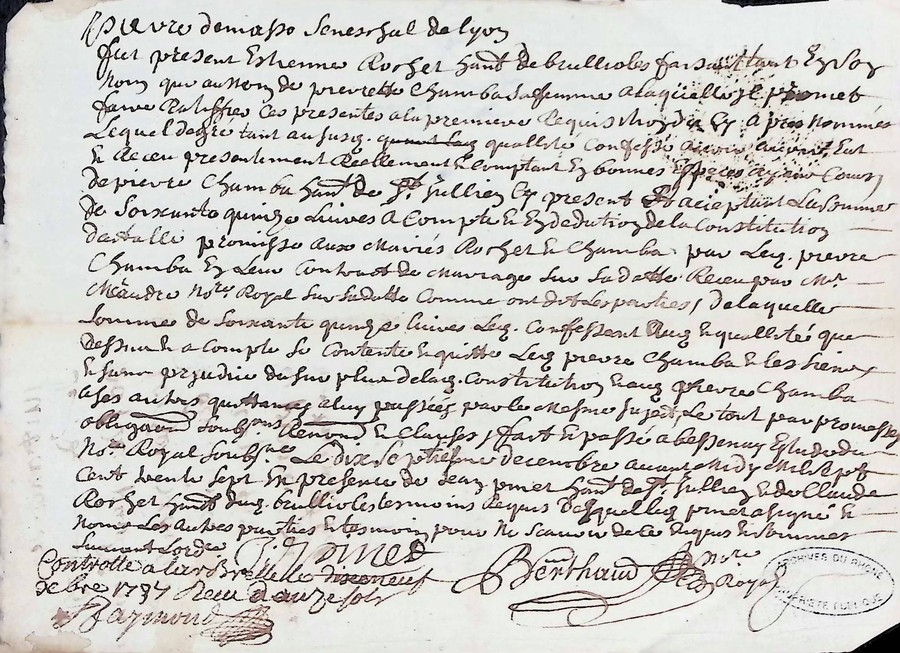 pierre demasso seneschal de lyon
fut present Estienne Rochet hant de brullioles faisant tant En son
nom que au nom de pierrette Chamba sa femme a laquelle Il promet
faire Ratiffier Ces presentes a la premiere Requisition du Cy apres nommés
Lequel degré tant au susq. quallité Confesse avoir
Receu presentement Reellement Comptant En bonnes Especes ayant Cours
de pierre Chamba hant de St Jullien Cy present Et aceptant La Somme
de Soixante quinze Livres a Compte Et En dedution de la Constitution
dotalle promisse aux Mariés Rochet Et Chamba par Leq. pierre
Chamba En Leur Contract de Mariage Receu par Me
Meandre Nore Royal Sur Sadatte Comme ont dit Les parties, de laquelle
Somme de Soixante quinze Livres Leq. Confessent En quallité que
dessus a Compte Se Contente Et quitte Leq pierre Chamba Et les Siens
Et Sans prejudice du Sur plus de laq. Constitution Et auq pierre Chamba
a Ses autres quittances a luy passées par le Mesme Sujet, Le tout par promesses
obligaons Soubsons Renonons Et Clauses, fait Et passé a bessenay Estude du
Nore Royal Soubsne Le dix Septieme decembre avant Midy Mil Sept
Cent trente Sept En presence de Jean pinet hant de St Jullien Et de Claude
Rochet hant duq. brullioles temoins Requis Desquels Leq pinet a Signé Et
Non Les autres parties Et temoin pour Ne Scavoir de Ce Enquis Et Sommes
Suivant Lordre
J Pinet
Berthaud Nore Royal
Controllé a larbresle le dixneuf
xbre 1737 Receu douze sols
Raymond
ARCHIVES DU RHONE
PROPRIÉTÉ PUBLIQUE